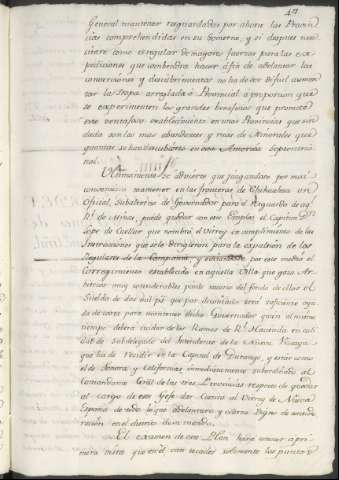 General mantener resguardadas por ahora las Provin
cias comprehendidas en su Govierno, y si despues nece
sitare como es regular de mayores fuerzas para las ex
pediciones que combendria hacer á fin de adelantar las
conversiones y descubrimientos no ha de ser dificil aumen
tar la tropa arreglada ó Provincial á proporcion que
se experimenten los grandes beneficios que promete
este ventajoso establecimiento en unas Provincias que sin
duda son las mas abundantes y ricas de Minerales que
quantas se han descubierto en esta America Septentrio
nal.
Ultimamente se advierte que juzgandose por mui
combeniente mantener en las fronteras de Chihuahua un
Oficial, Subalterno de Governador para el resguardo de aq.l
R.l de Minas, puede quedar con este Empleo el Capitan D.n
Lope de Cuellar que nombró el Virrey en cumplimiento de las
Instrucciones que se le dirigieron para la expulsion de los
Regulares de la Compañia, y por este medio el
Corregimiento establecido en aquella Villa que goza Ar
bitrios muy considerables puede sacarse del fondo de ellos el
Sueldo de dos mil p.s que por de contado será suficiente ayu
da de costa para mantener dicho Governador quien al mismo
tiempo deberá cuidar de los Ramos de R.l Hacienda en cali
dad de Subdelegado del Intendente de la Nueva Vizcaya
que ha de residir en la Capital de Durango, y estár como
el de Sonora y Californias inmediatamente subordinado al
Comandante Gral de las tres Provincias respecto de quedar
al cargo de este Gefe dar Cuenta al Virrey de Nueva
España de todo lo que adelantare y ocurra digno de conside
racion en el distrito de su mando.
El examen de este Plan hará conocer á pri
mera vista que en él van tocados solamente los puntos